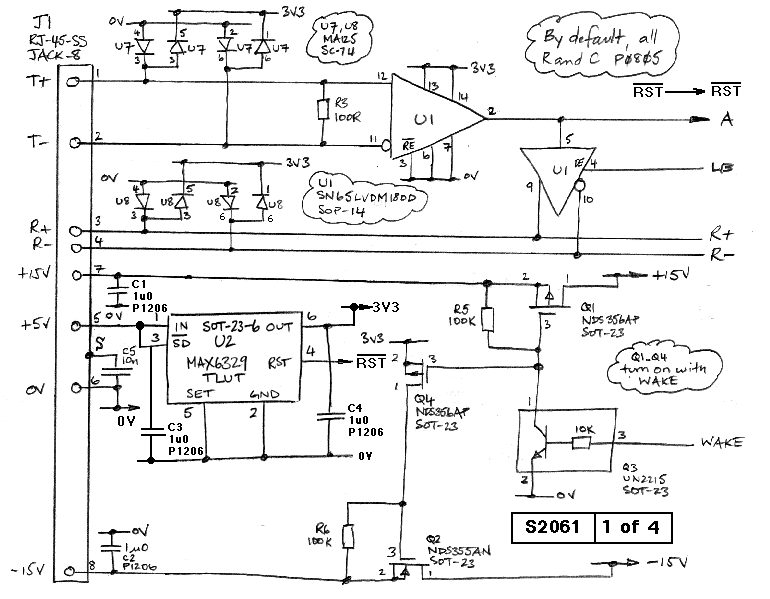 J1
RJ-45-SS
JACK-8
0V
3V3
4
5
2
1
U7
U7
U7
U7
3
3
6
6
U7, U8
MA125
SC-74
By default, all
R and C P0805
RST
RST
T+
1
12
3V3
13
14
R3
100R
U1
2
A
T-
2
11
RE
3
6
7
0V
5
U1
RE
4
LB
9
10
3V3
0V
4
5
2
1
U8
U8
U8
U8
3
3
6
6
U1
SN65LVDM180D
SOP-14
R+
3
R+
R-
4
R-
+15V
7
C1
1u0
P1206
0V
2
1
+15V
R5
100K
3
Q1
NDS356AP
SOT-23
+5V
5
1
3
IN
SD
SOT-23-6
OUT
U2
MAX6329
TLUT
RST
SET
GND
6
3V3
4
RST
5
2
S
C5
10n
6
0V
0V
C3
1u0
P1206
C4
1u0
P1206
0V
3V3
2
3
1
Q4
NDS356AP
SOT-23
Q1-Q4
turn on with
WAKE
1
10K
3
WAKE
2
Q3
UN2215
SOT-23
0V
S2061
1 of 4
R6
100K
3
2
1
Q2
NDS355AN
SOT-23
-15V
0V
1u0
C2
P1206
-15V
8